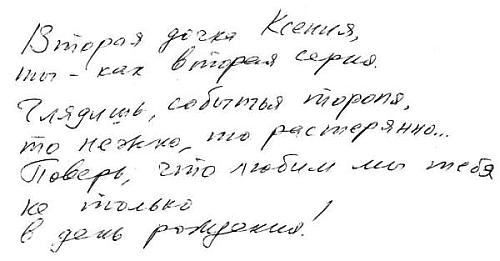 Вторая дочка Ксения,
ты - как вторая серия.
Глядишь, событья торопя,
то нежно, то растерянно...
Поверь, что любим мы тебя
не только
в день рождения!